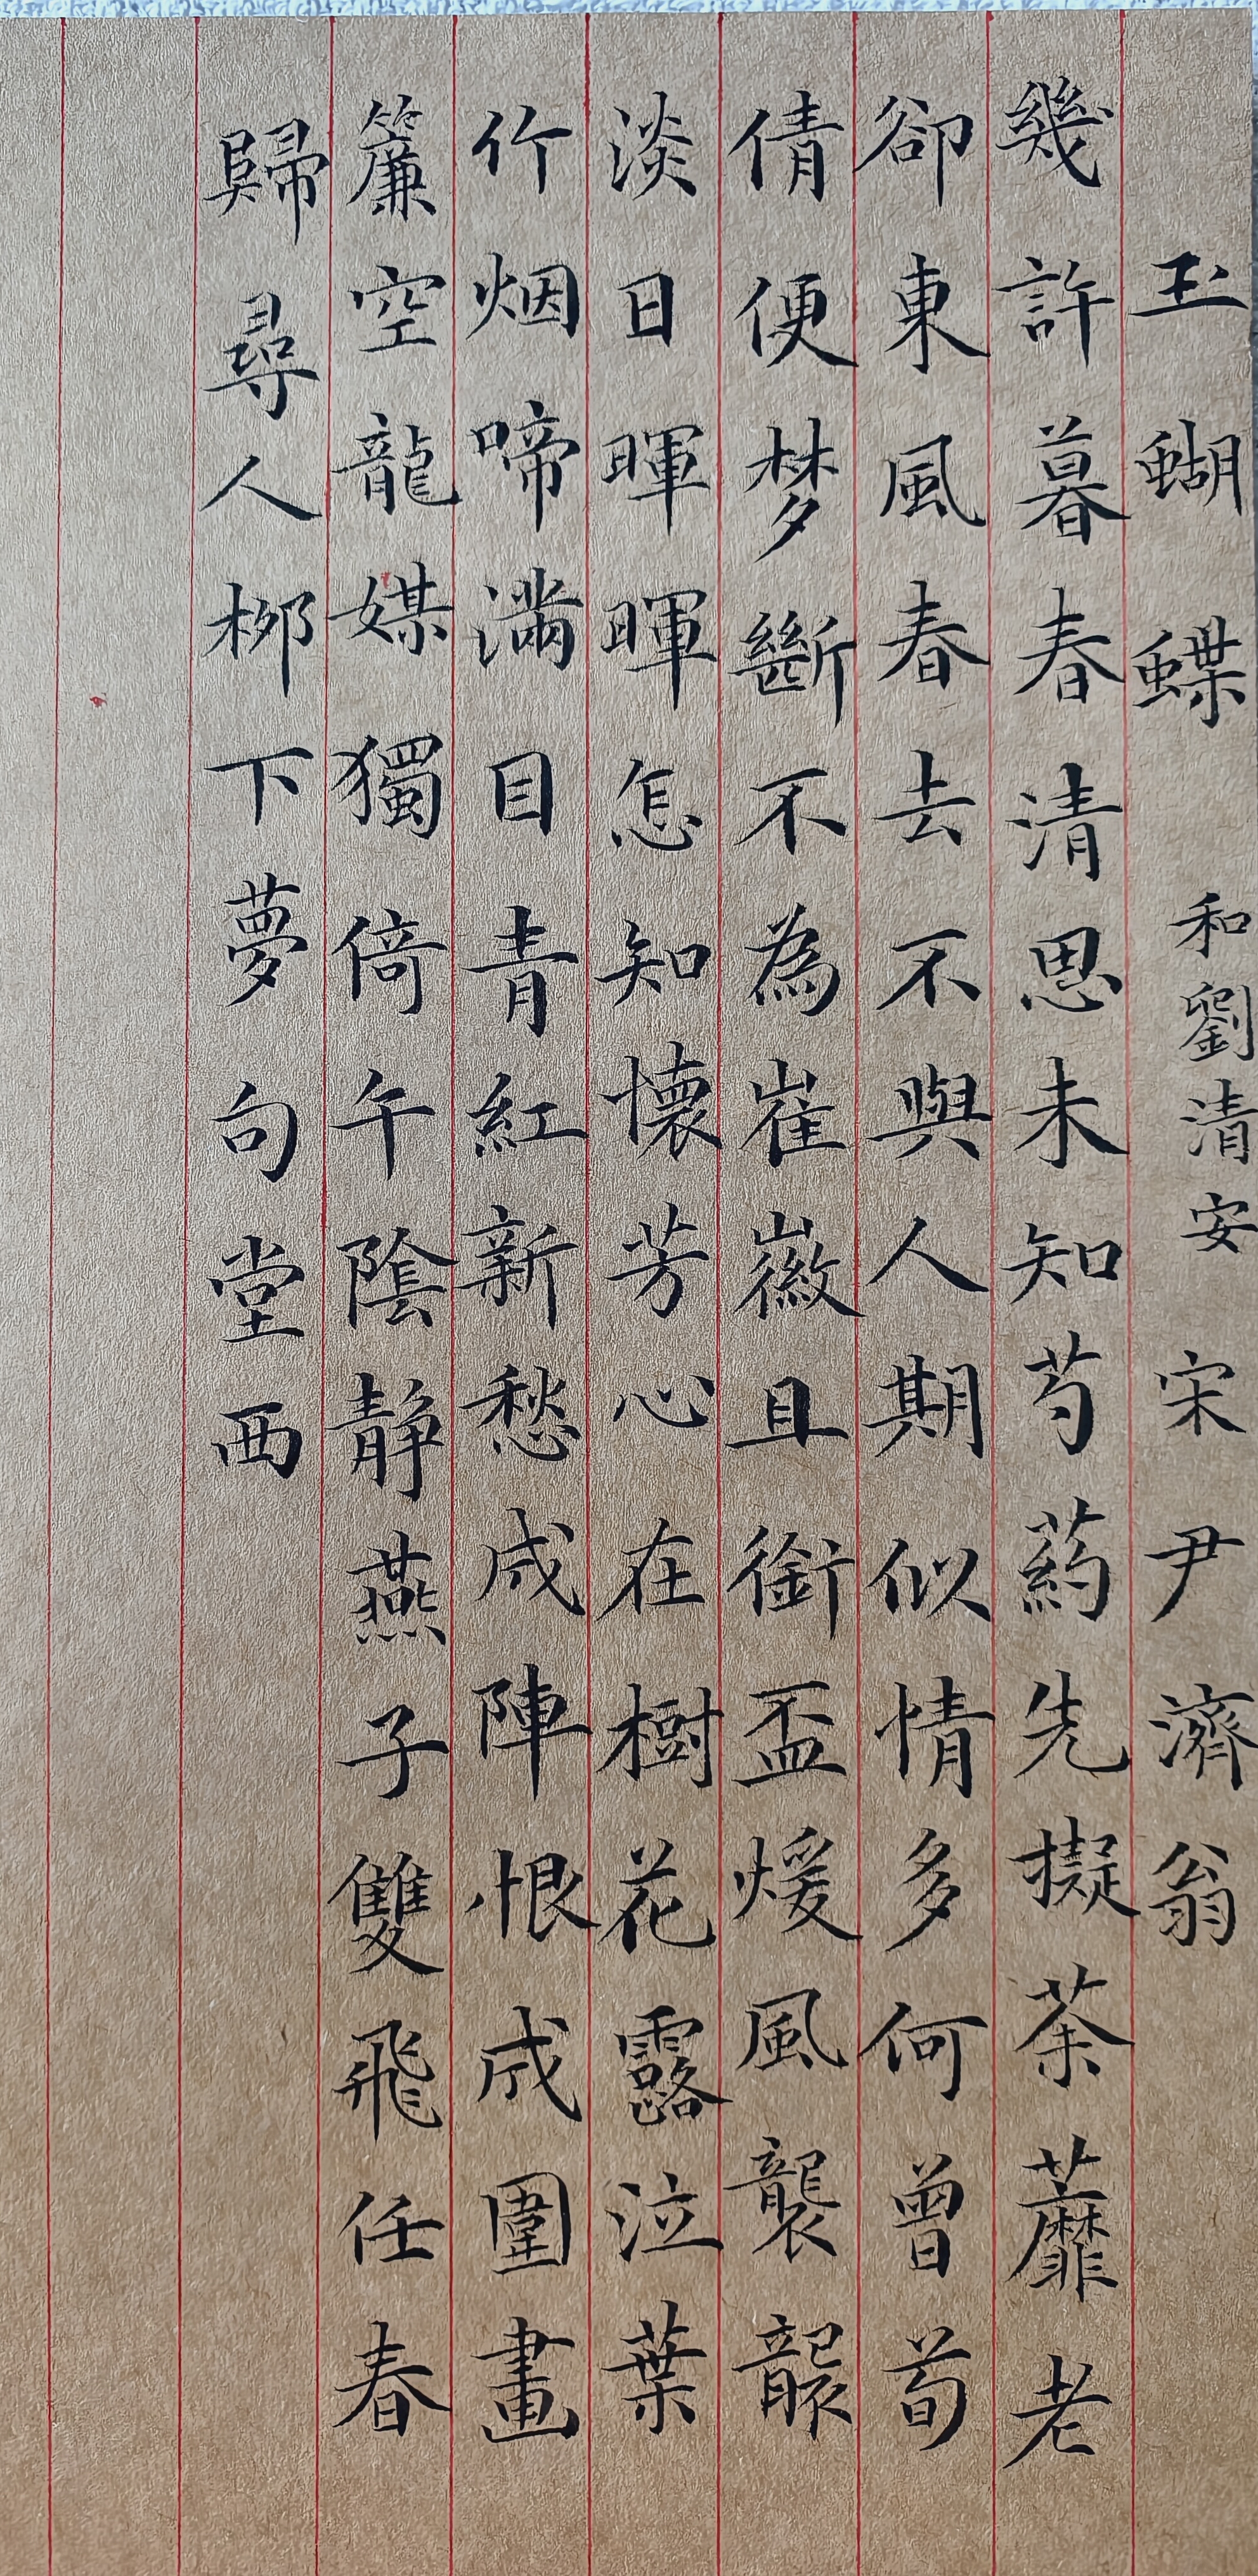 玉蝴蝶 和劉清安 宋尹濟翁
幾許暮春清思未知芍葯先擬荼蘼老
卻東風春去不與人期似情多何曾荀
倩便梦斷不為崔徽且銜盃煖風襲襲
淡日暉暉怎知懷芳心在樹花露泣葉
竹烟啼滿目青紅新愁成陣恨成圍畫
簾空龍媒獨倚午陰靜燕子雙飛任春
歸尋人柳下夢句堂西